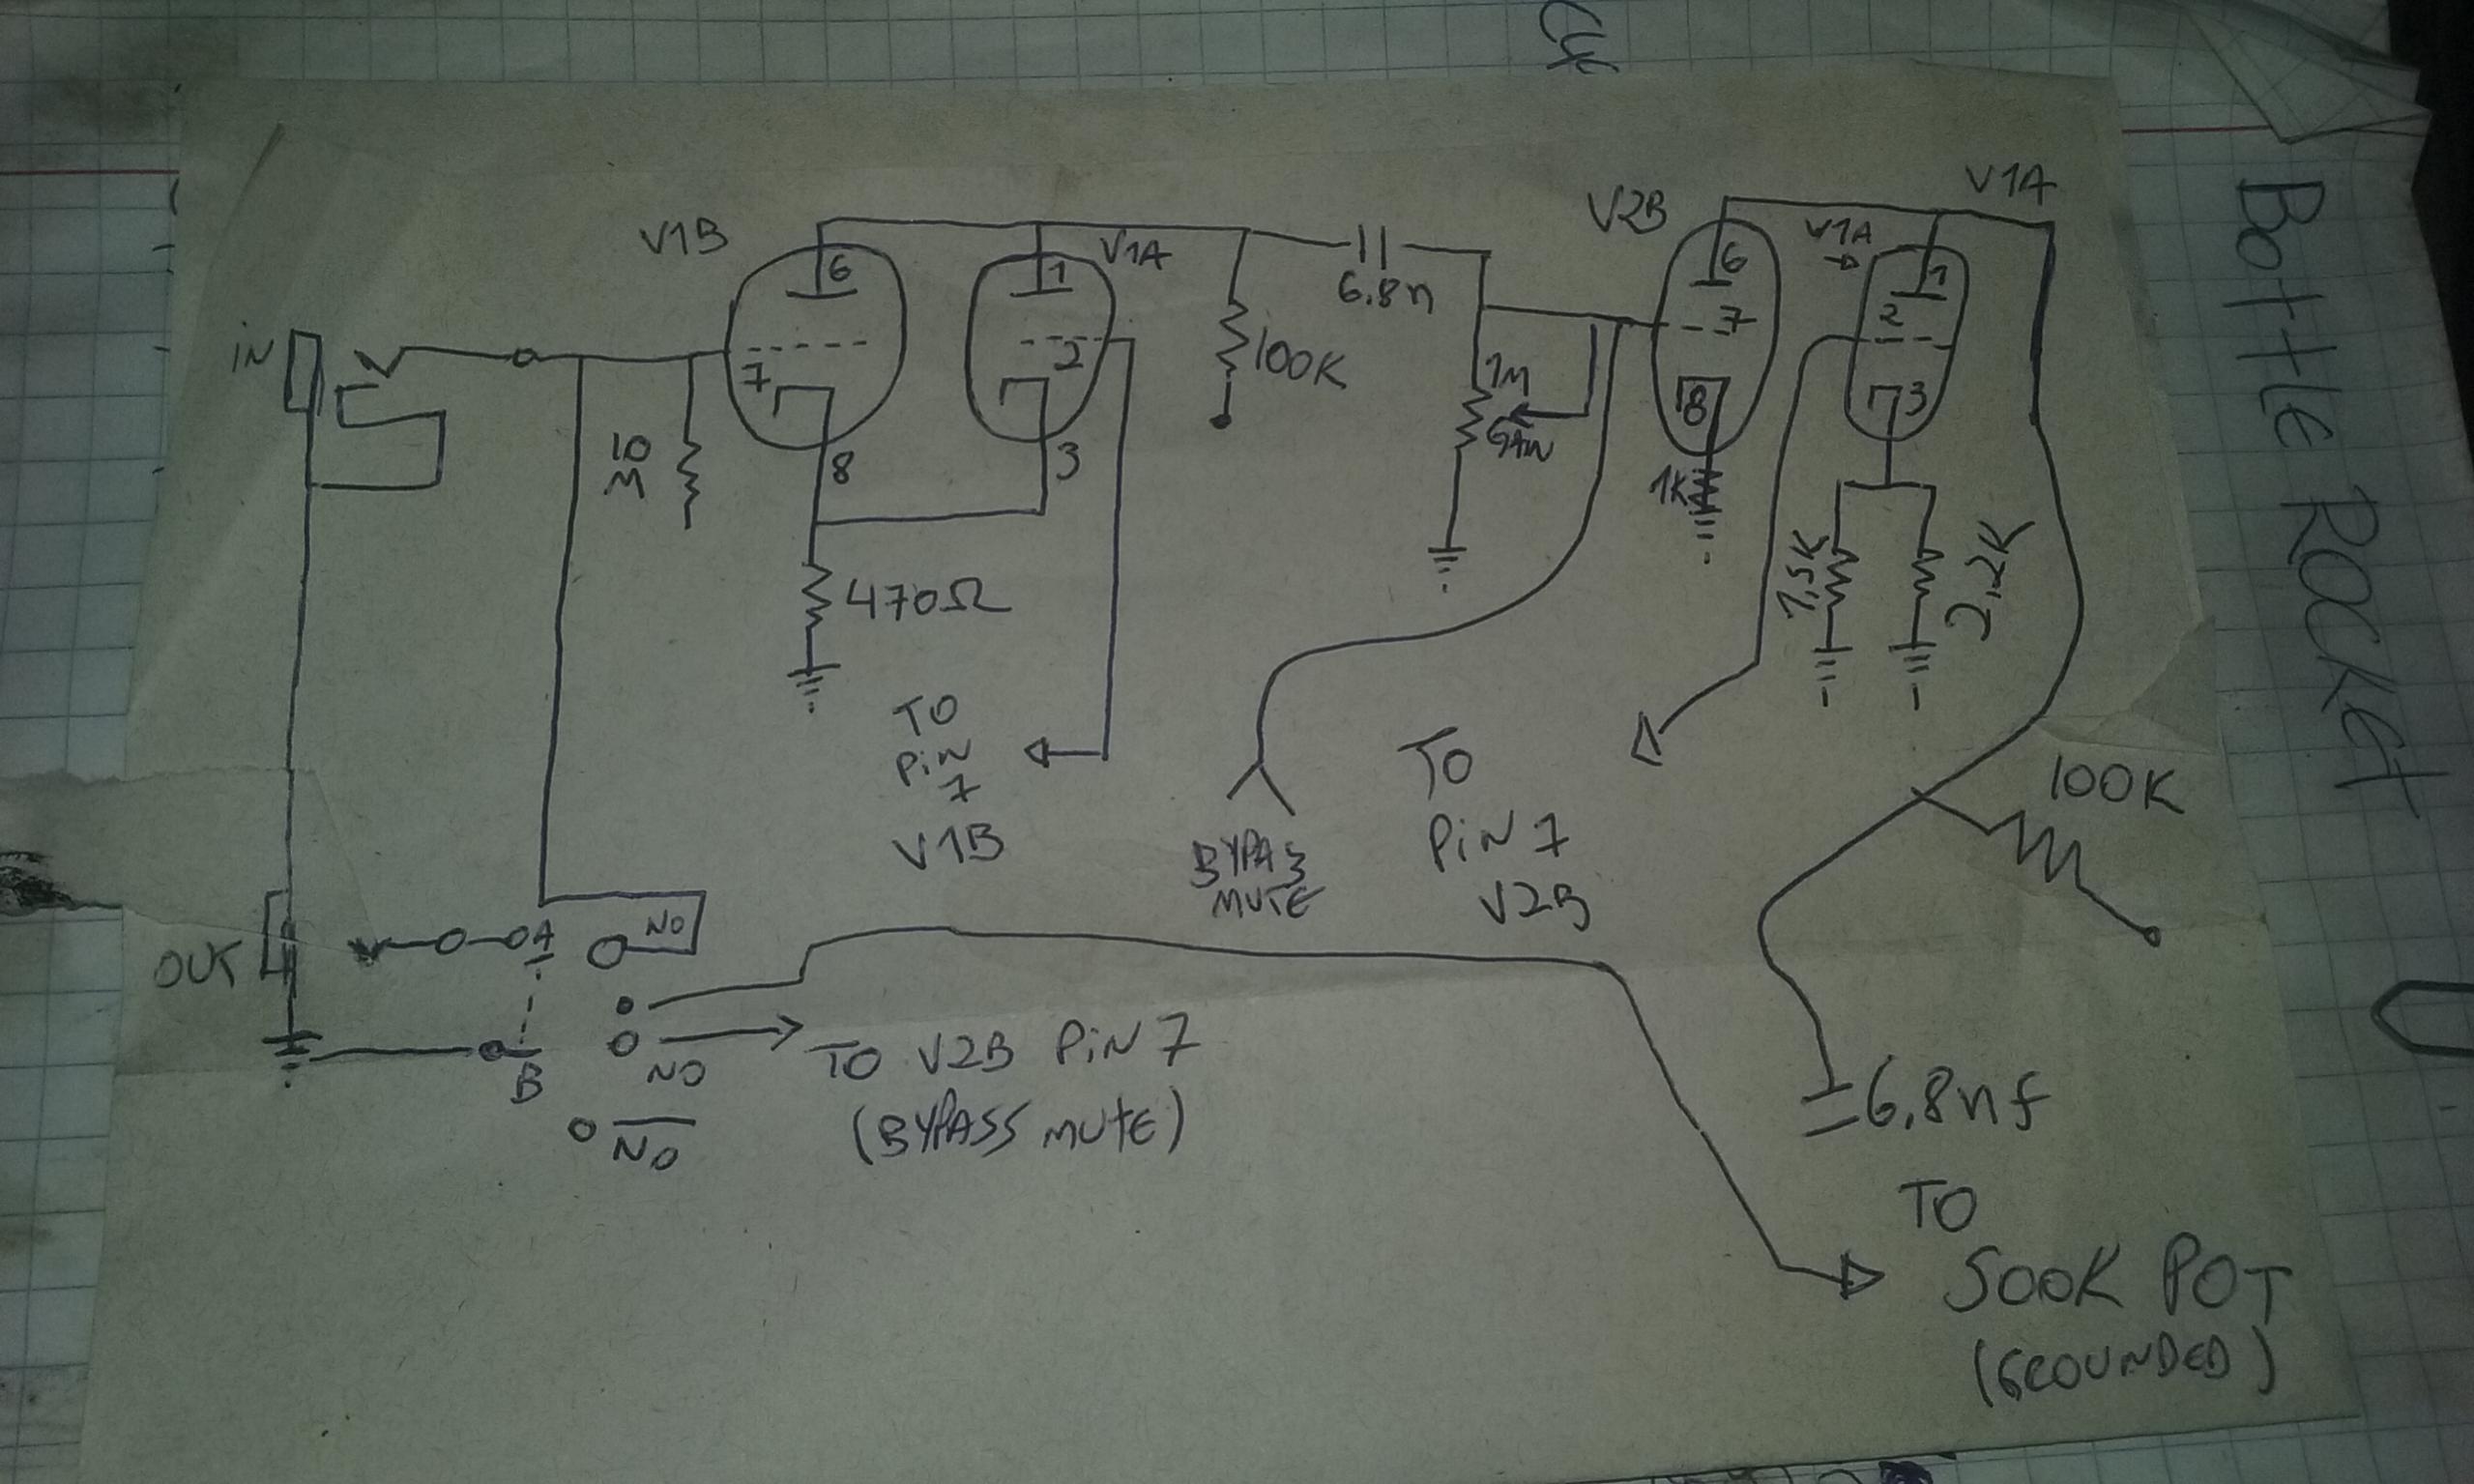 V1B
V1A
V2B
V1A
V1A
IN
6
1
6
1
7
2
7
2
8
3
8
3
6.8n
100K
1M
GAIN
10
M
1K
470Ω
1,5K
2,2K
TO
PIN
7
V1B
BYPAS
MUTE
TO
PIN 7
V2B
100K
OUT
A
NO
B
NO
TO V2B PIN 7
(BYPASS MUTE)
NO
6.8nf
TO
500K POT
(GROUNDED)
BOTTLE ROCKET